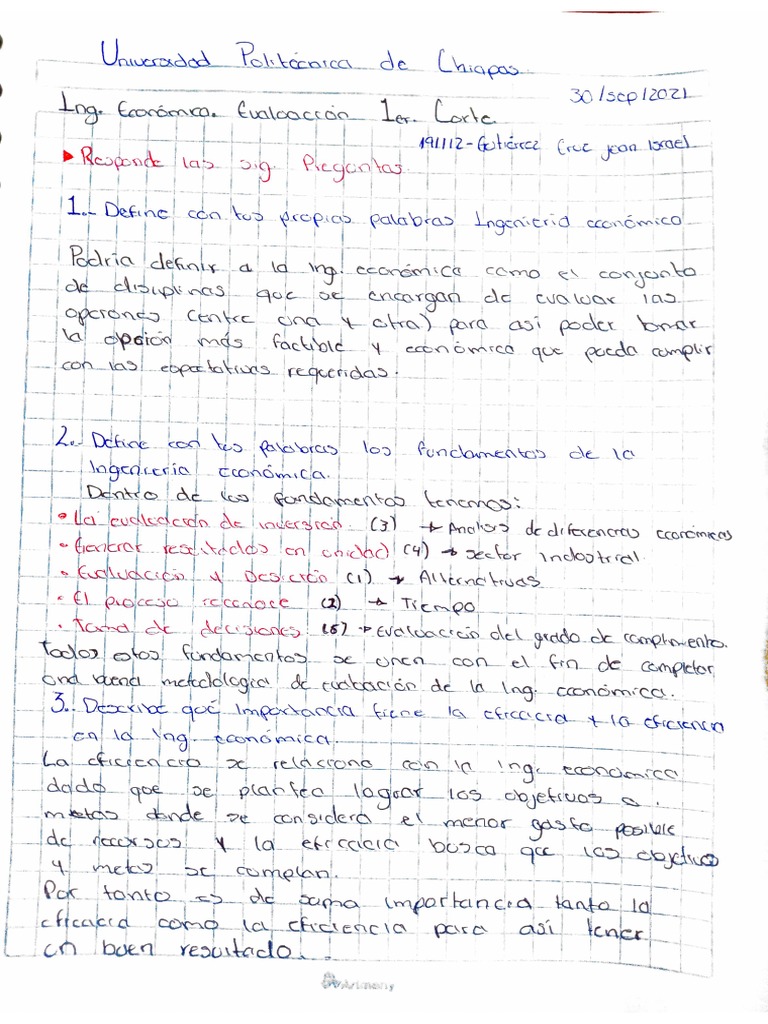 Universidad Politécnica de Chiapas
30/sep/2021
Ing. Económica. Evaluación 1er. Corte
191112-Gutiérrez Cruz Jean Israel
Responde las sig. Preguntas
1.- Define con tus propias palabras Ingenieria económica
Podria definir a la ing. económica como el conjunto
de disciplinas que se encargan de evaluar las
opciones (entre una y otra) para así poder tomar
la opción más factible y económica que pueda cumplir
con las espectativas requeridas.
2.- Define con tus palabras los fundamentos de la
Ingenieria económica.
Dentro de los fundamentos tenemos:
• La evaluación de inversión (3) → Analisis de diferencias económicas
• Generar resultados en unidad (4) → sector industrial
• Evaluación y Desición (1) → Alternativas
• El proceso reconoce (2) → Tiempo
• Toma de decisiones (5) → Evaluación del grado de complimento.
Todos estos fundamentos se unen con el fin de completar
una buena metodologia de evaluación de la Ing. económica.
3.- Describe qué importancia tiene la eficacia y la eficiencia
en la Ing. económica.
La eficiencia se relaciona con la ing. económica
dado que se plantea lograr los objetivos o
metas donde se considera el menor gasto posible
de recursos y la eficacia busca que los objetivos
y metas se cumplan.
Por tanto es de suma importancia tanto la
eficacia como la eficiencia para así tener
un buen resultado.